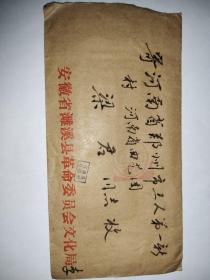 寄河南省郑州市工人第一新
村河南省曲艺团
梁君同志收
安徽省濉溪县革命委员会文化局李